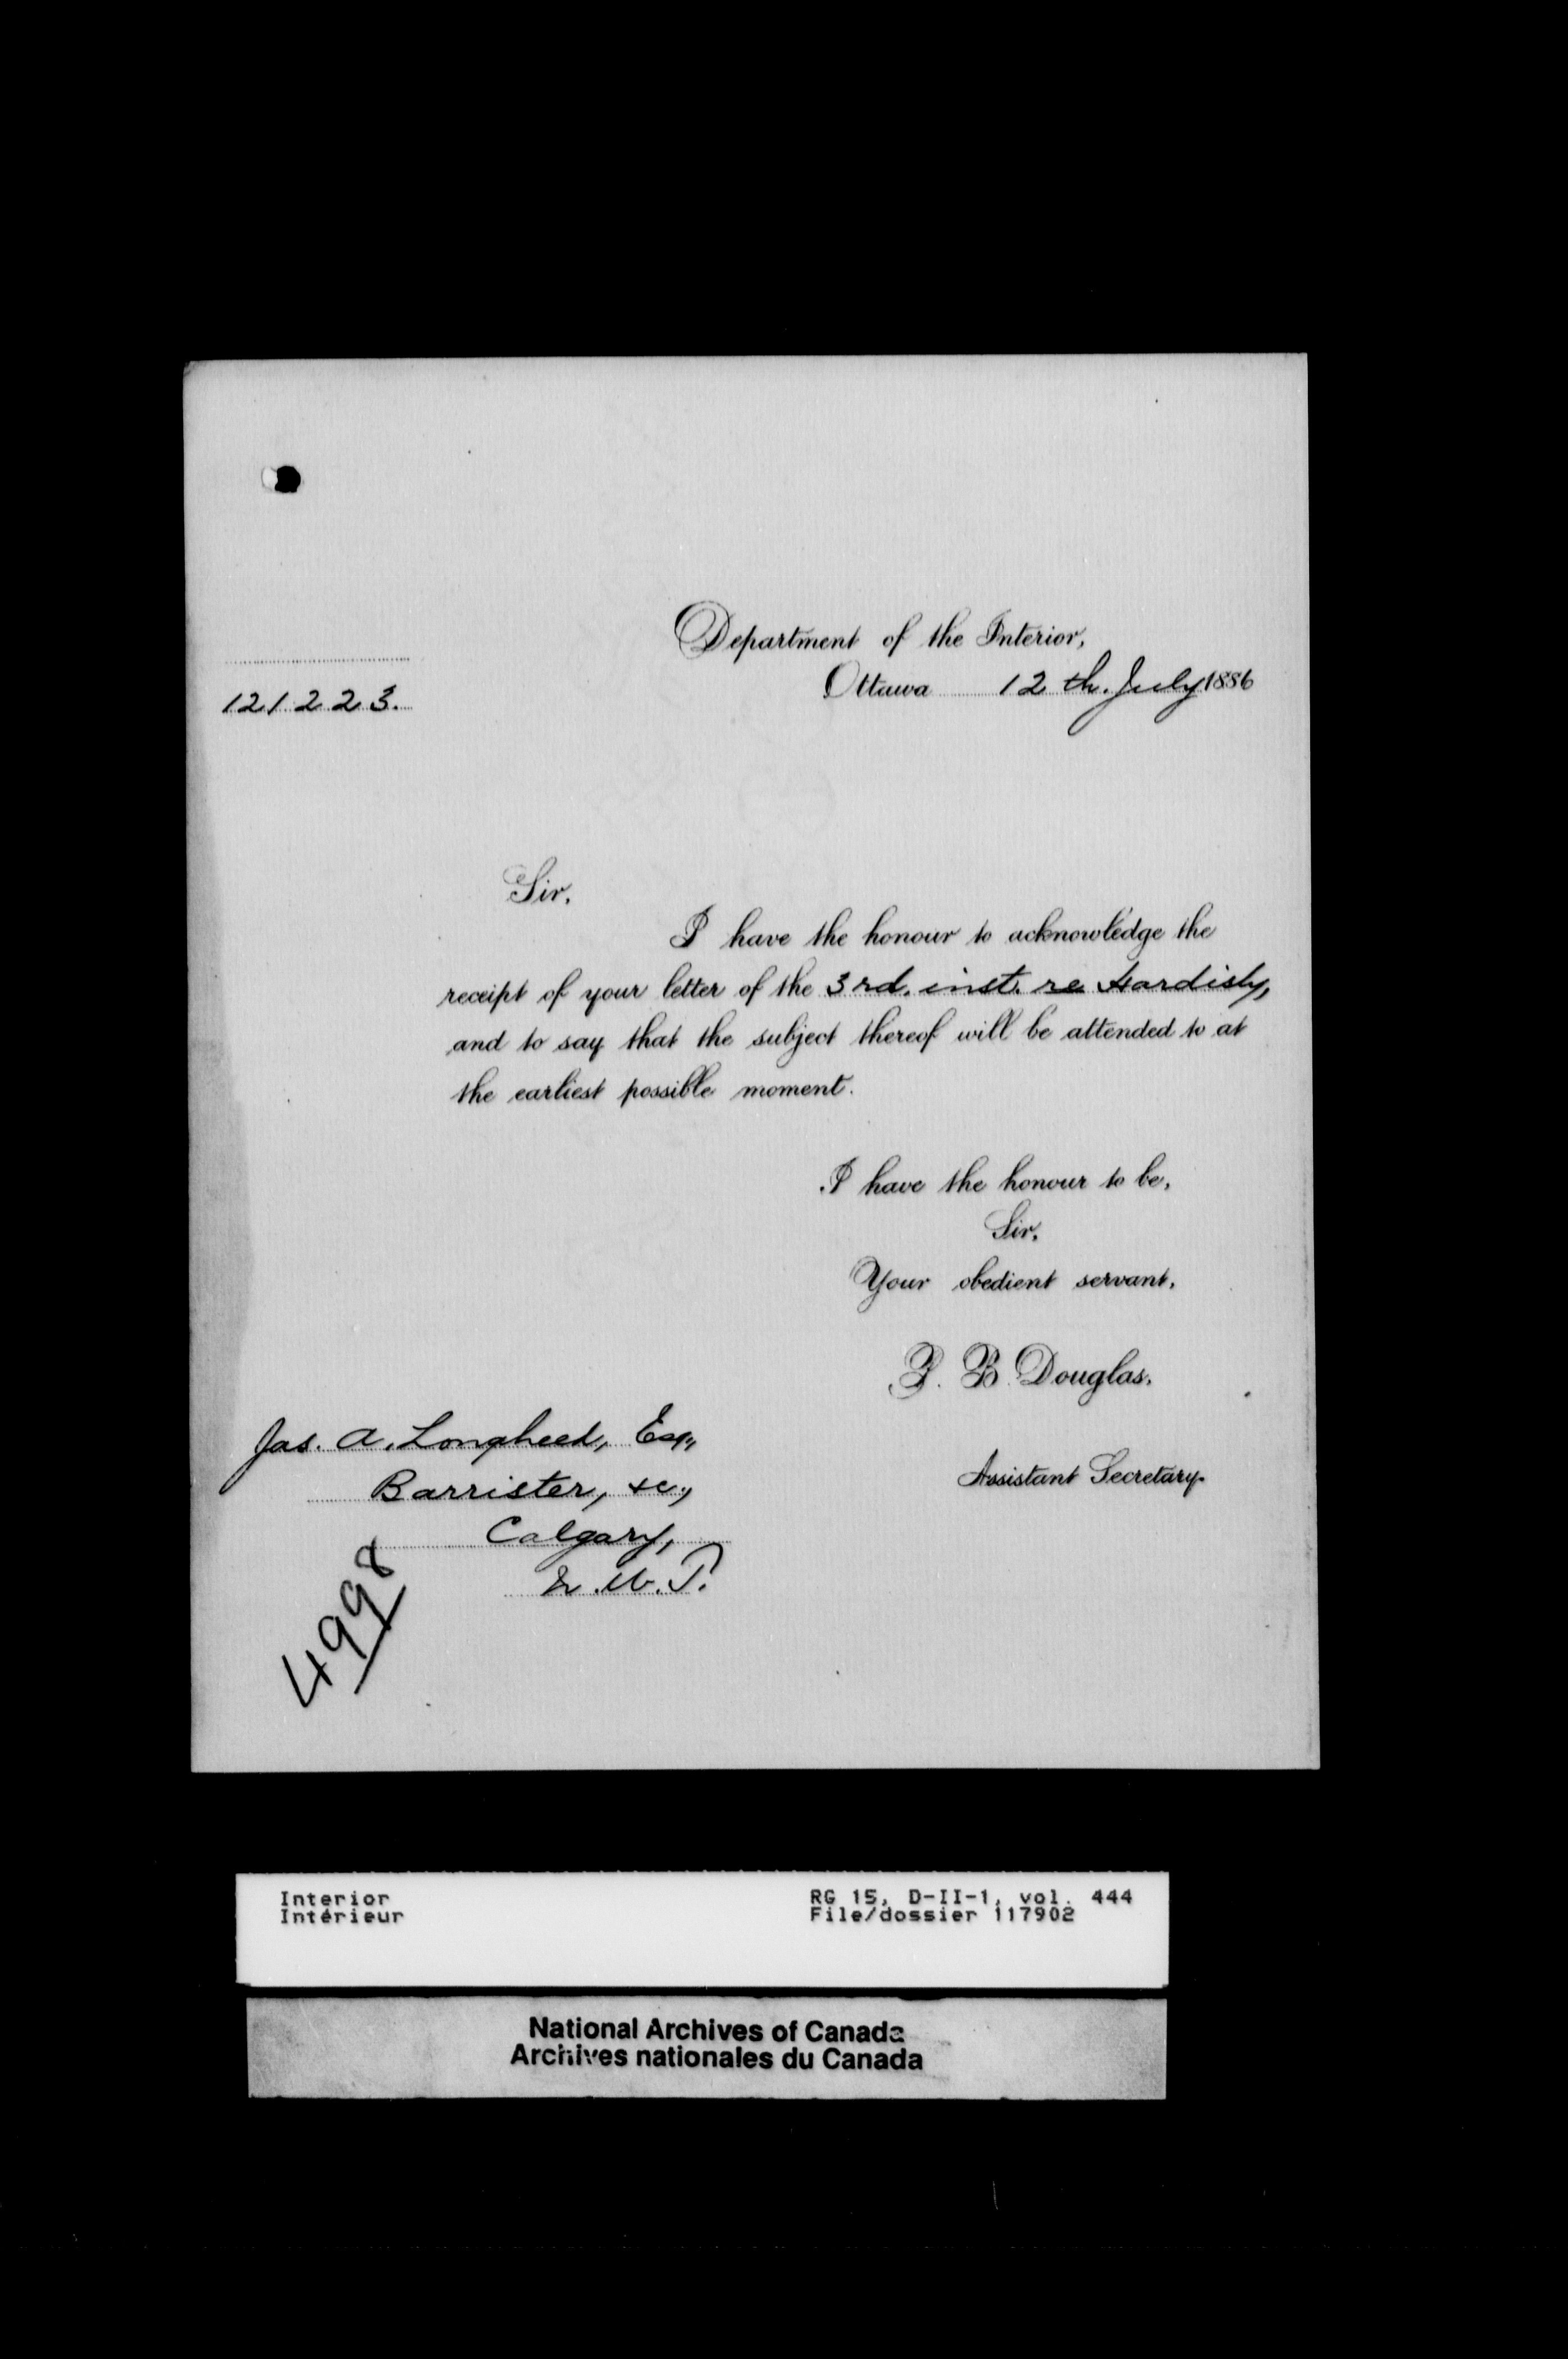 Department of the Interior,
Ottawa 12th. July 1886
121223.
Sir,
I have the honour to acknowledge the
receipt of your letter of the 3rd. inst. re Hardisty,
and to say that the subject thereof will be attended to at
the earliest possible moment.
I have the honour to be,
Sir,
Your obedient servant,
P. B. Douglas,
Assistant Secretary.
Jas. A. Lougheed, Esq.,
Barrister, &c.,
Calgary,
N.W.T.
4998
Interior
Intérieur
RG 15, D-II-1, vol. 444
File/dossier 117902
National Archives of Canada
Archives nationales du Canada